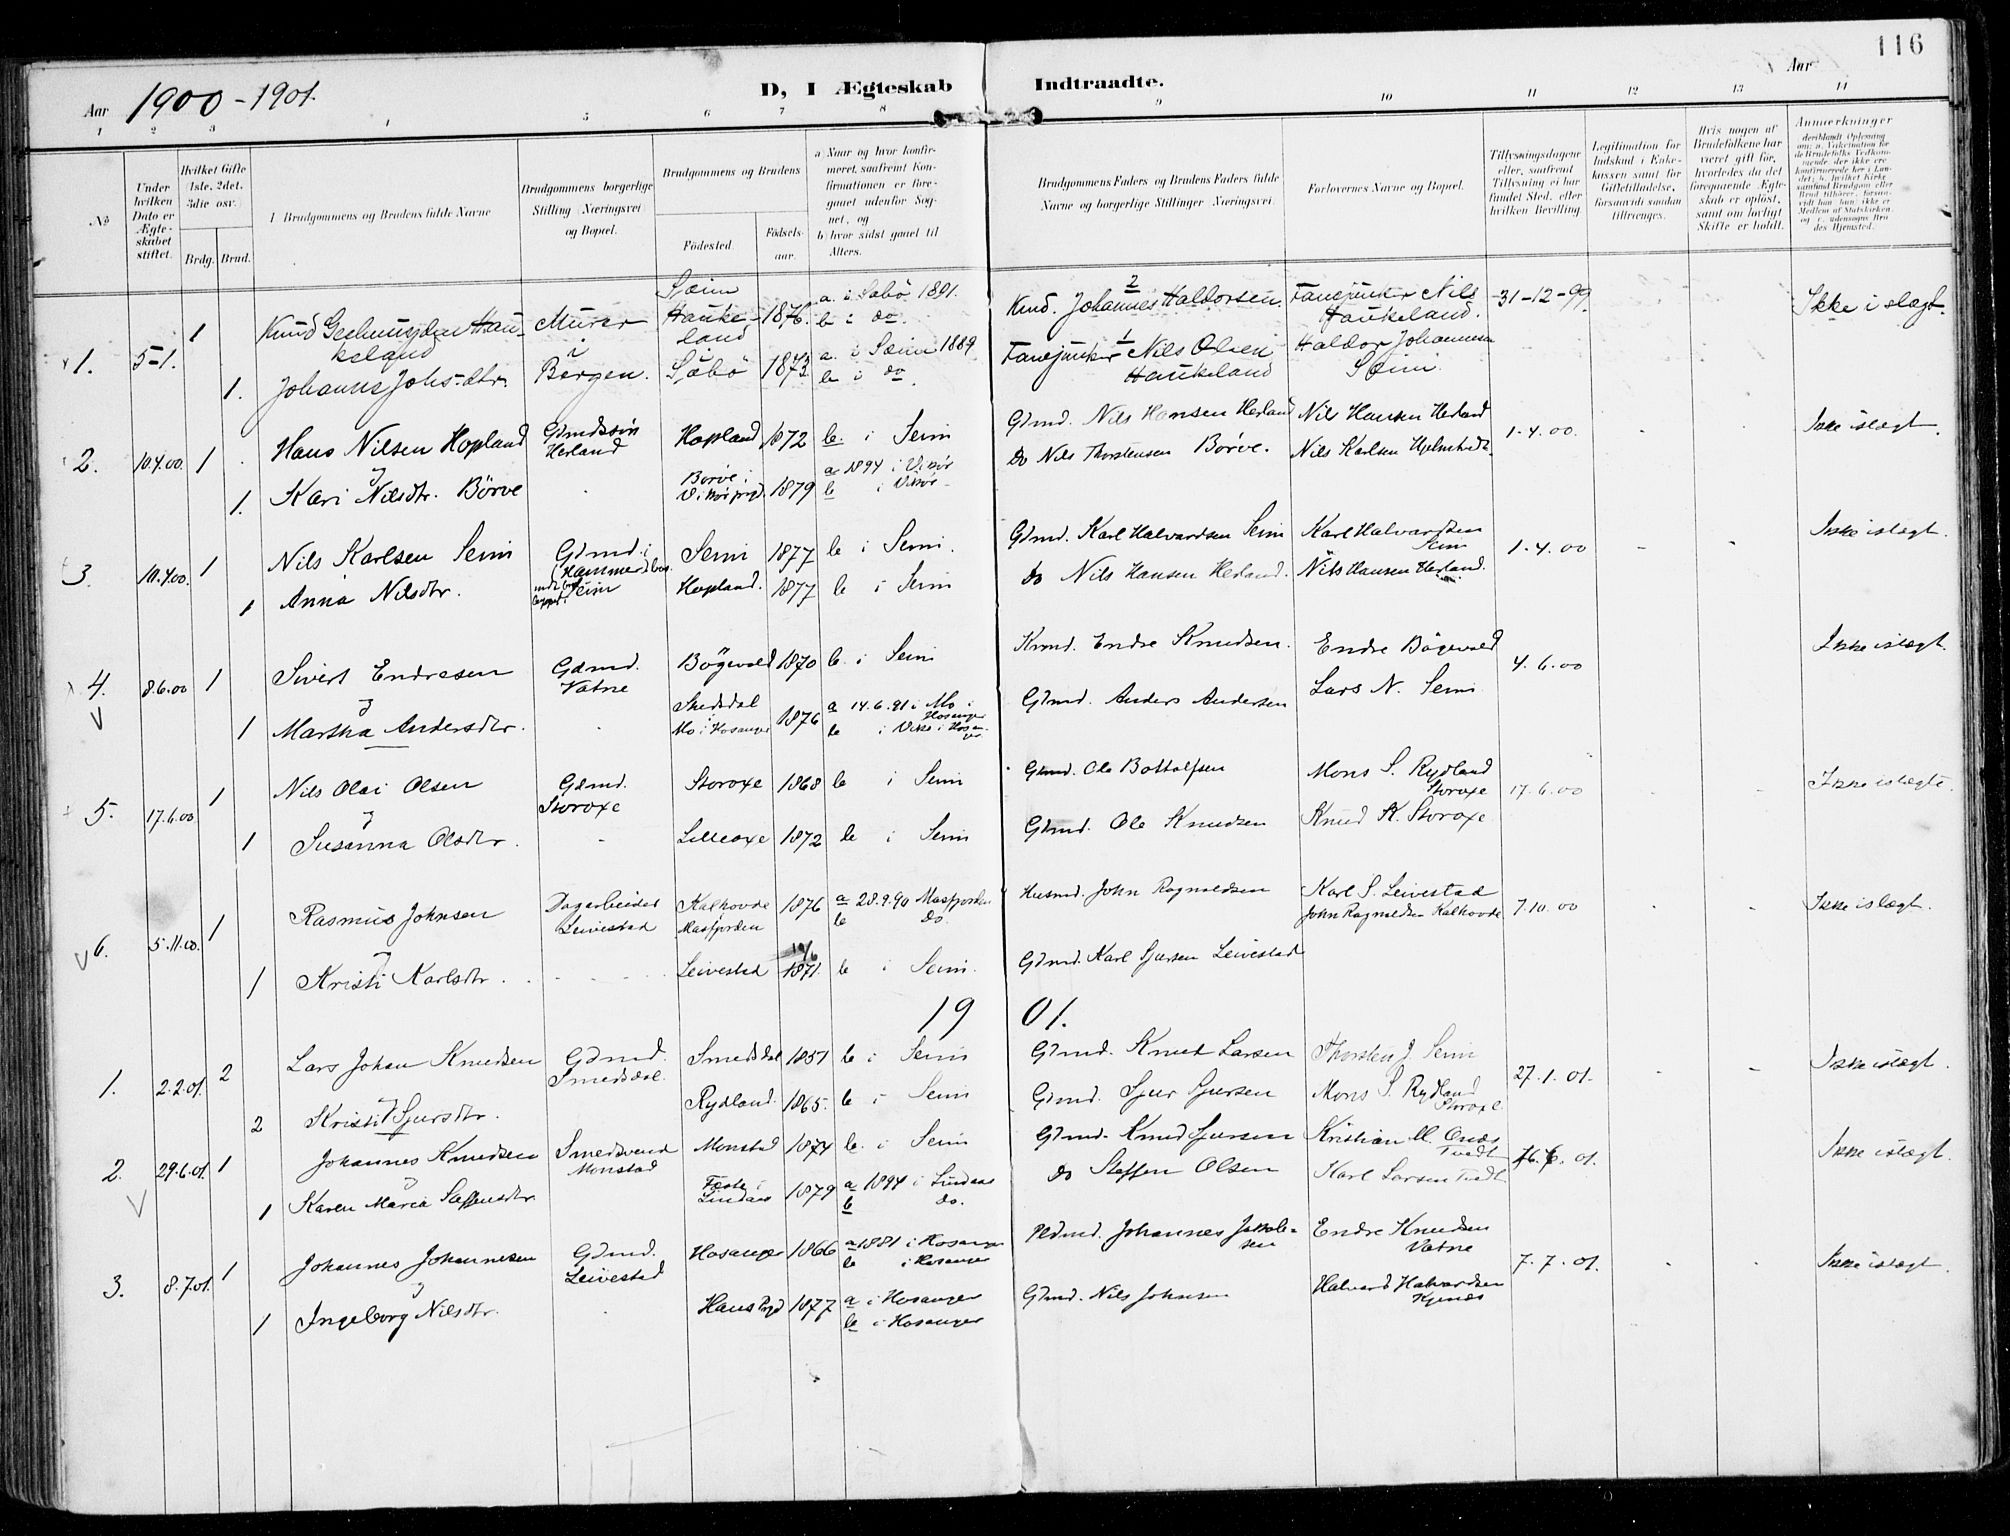 116
Aar 1900-1901.
D, I Ægteskab Indtraadte.
Aar
1 2 3 4 5 6 7 8 9 10 11 12 13 14
No
Under hvilken Dato er Ægteskabet stiftet.
Hvilket Gifte 1ste, 2det, 3die osv.
Brdg. Brud.
Brudgommens og Brudens fulde Navne
Brudgommens borgerlige Stilling Næringsvei og Bopæl.
Brudgommens og Brudens
Fødested.
Fødselsaar.
a) Naar og hvor konfirmeret, saafremt Konfirmationen er foregaaet udenfor Sognet, og
b) hvor sidst gaaet til Alters.
Brudgommens Faders og Brudens Faders fulde Navne og borgerlige Stillinger Næringsvei.
Forlovernes Navne og Bopæl.
Tillysningsdagene eller, saafremt Tillysning ei har fundet Sted, efter hvilken Bevilling.
Legitimation for Indskud i Enkekassen samt for Giftetilladelse, forsaavidt saadan tiltrænges.
Hvis nogen af Brudefolkene har været gift før, hvorledes da det foregaaende Ægteskab er opløst, samt om lovligt Skifte er holdt.
Anmærkninger
1. 5-1. 1 Knud Haukeland Murer i Bergen. Sæim Haukeland 1876. a. i Sæbö 1891. b i do. Knd. Johannes Haldorsen. 2 Fanejunker Nils Haukeland. 31-12-99 Ikke i slægt.
1. Johanne Johs-dtr. Sæbö 1873. a. i Sæim 1889 b i do Fanejunker Nils Olsen Haukeland 1 Haldor Johannesen Sæim.
2. 10.4.00. 1 Hans Nilsen Hopland Gdmdssön Herland Hopland 1872 b. i Seim Gdmd. Nils Hansen Herland Nils Hansen Herland 1.4.00. Ikke i slægt.
1. Kari Nilsdtr. Börve Börve i Vikör prgd. 1879 a 1894 i Vikör b i Vikör Do Nils Thorstensen Börve. Nils Karlsen
3. 10.4.00. 1 Nils Karlsen Seim Gdmd. i Hammersbg. Seim Seim 1877 b i Seim. Gdmd. Karl Halvardsen Seim Karl Halvardsen Seim 1.4.00 Ikke i slægt.
1 Anna Nilsdtr. Hopland. 1877 b i Seim do Nils Hansen Herland. Nils Hansen Herland.
4. 8.6.00 1 Sivert Endresen Gdmd. Vatne Bögevold 1870 b. i Seim Endre Knudsen. Endre Bögevold 4.6.00 Ikke i slægt.
1 Martha Andersdtr. Mo i Hosanger 1876 a 14.6.91 i Mo i Hosanger b i Hosanger Gdmd. Anders Andersen Lars N. Seim
5. 17.6.00 1 Nils Olai Olsen Gdmd. Storoxe Storoxe 1868 b i Seim Gdmd. Ole Bottolfsen Mons S. Rydland Storoxe 17.6.00 Ikke i slægt.
1 Susanna Olsdtr. Lilleoxe 1872 b i Seim Gdmd. Ole Knudsen Knud K. Storoxe
6. 5.11.00. 1 Rasmus Johnsen Dagarbeider Leivestad Kalhovde Masfjorden 1876 a 28.9.90 Masfjorden b do. Husmd. John Ragnaldsen Karl S. Leivestad John Ragnaldsen Kalhovde 7.10.00 Ikke i slægt.
1 Kristi Karlsdtr. Leivestad 1871. b i Seim. Gdmd. Karl Sjursen Leivestad
1901.
1. 2.2.01. 2 Lars Johan Knudsen Gdmd. Smedsdal. Smedsdal 1857 b i Seim Gdmd. Knud Larsen Thorsten J. Seim 27.1.01. Ikke i slægt.
2 Kristi Sjursdtr. Rydland. 1865. b i Seim Gdmd. Sjur Sjursen Mons S. Rydland Storoxe.
2. 29.6.01. 1 Johannes Knudsen Smedsvend Monstad Monstad 1874 b. i Seim Gdmd. Knud Sjursen Kristian M. Tvedt 16.6.01. Ikke i slægt.
1 Karen Maria Steffensdtr. Lindaas 1879 a 1894 i Lindaas b do. do Steffen Olsen Karl Larsen Tvedt
3. 8.7.01. 1 Johannes Johannesen Gdmd. Leivestad Hosanger 1866 a 1881 i Hosanger b i Hosanger Johannes Endre Knudsen Vatne 7.7.01. Ikke i slægt.
1 Ingeborg Nilsdtr. 1877 a i Hosanger b i Hosanger Gdmd. Nils Johnsen Halvard Halvardsen